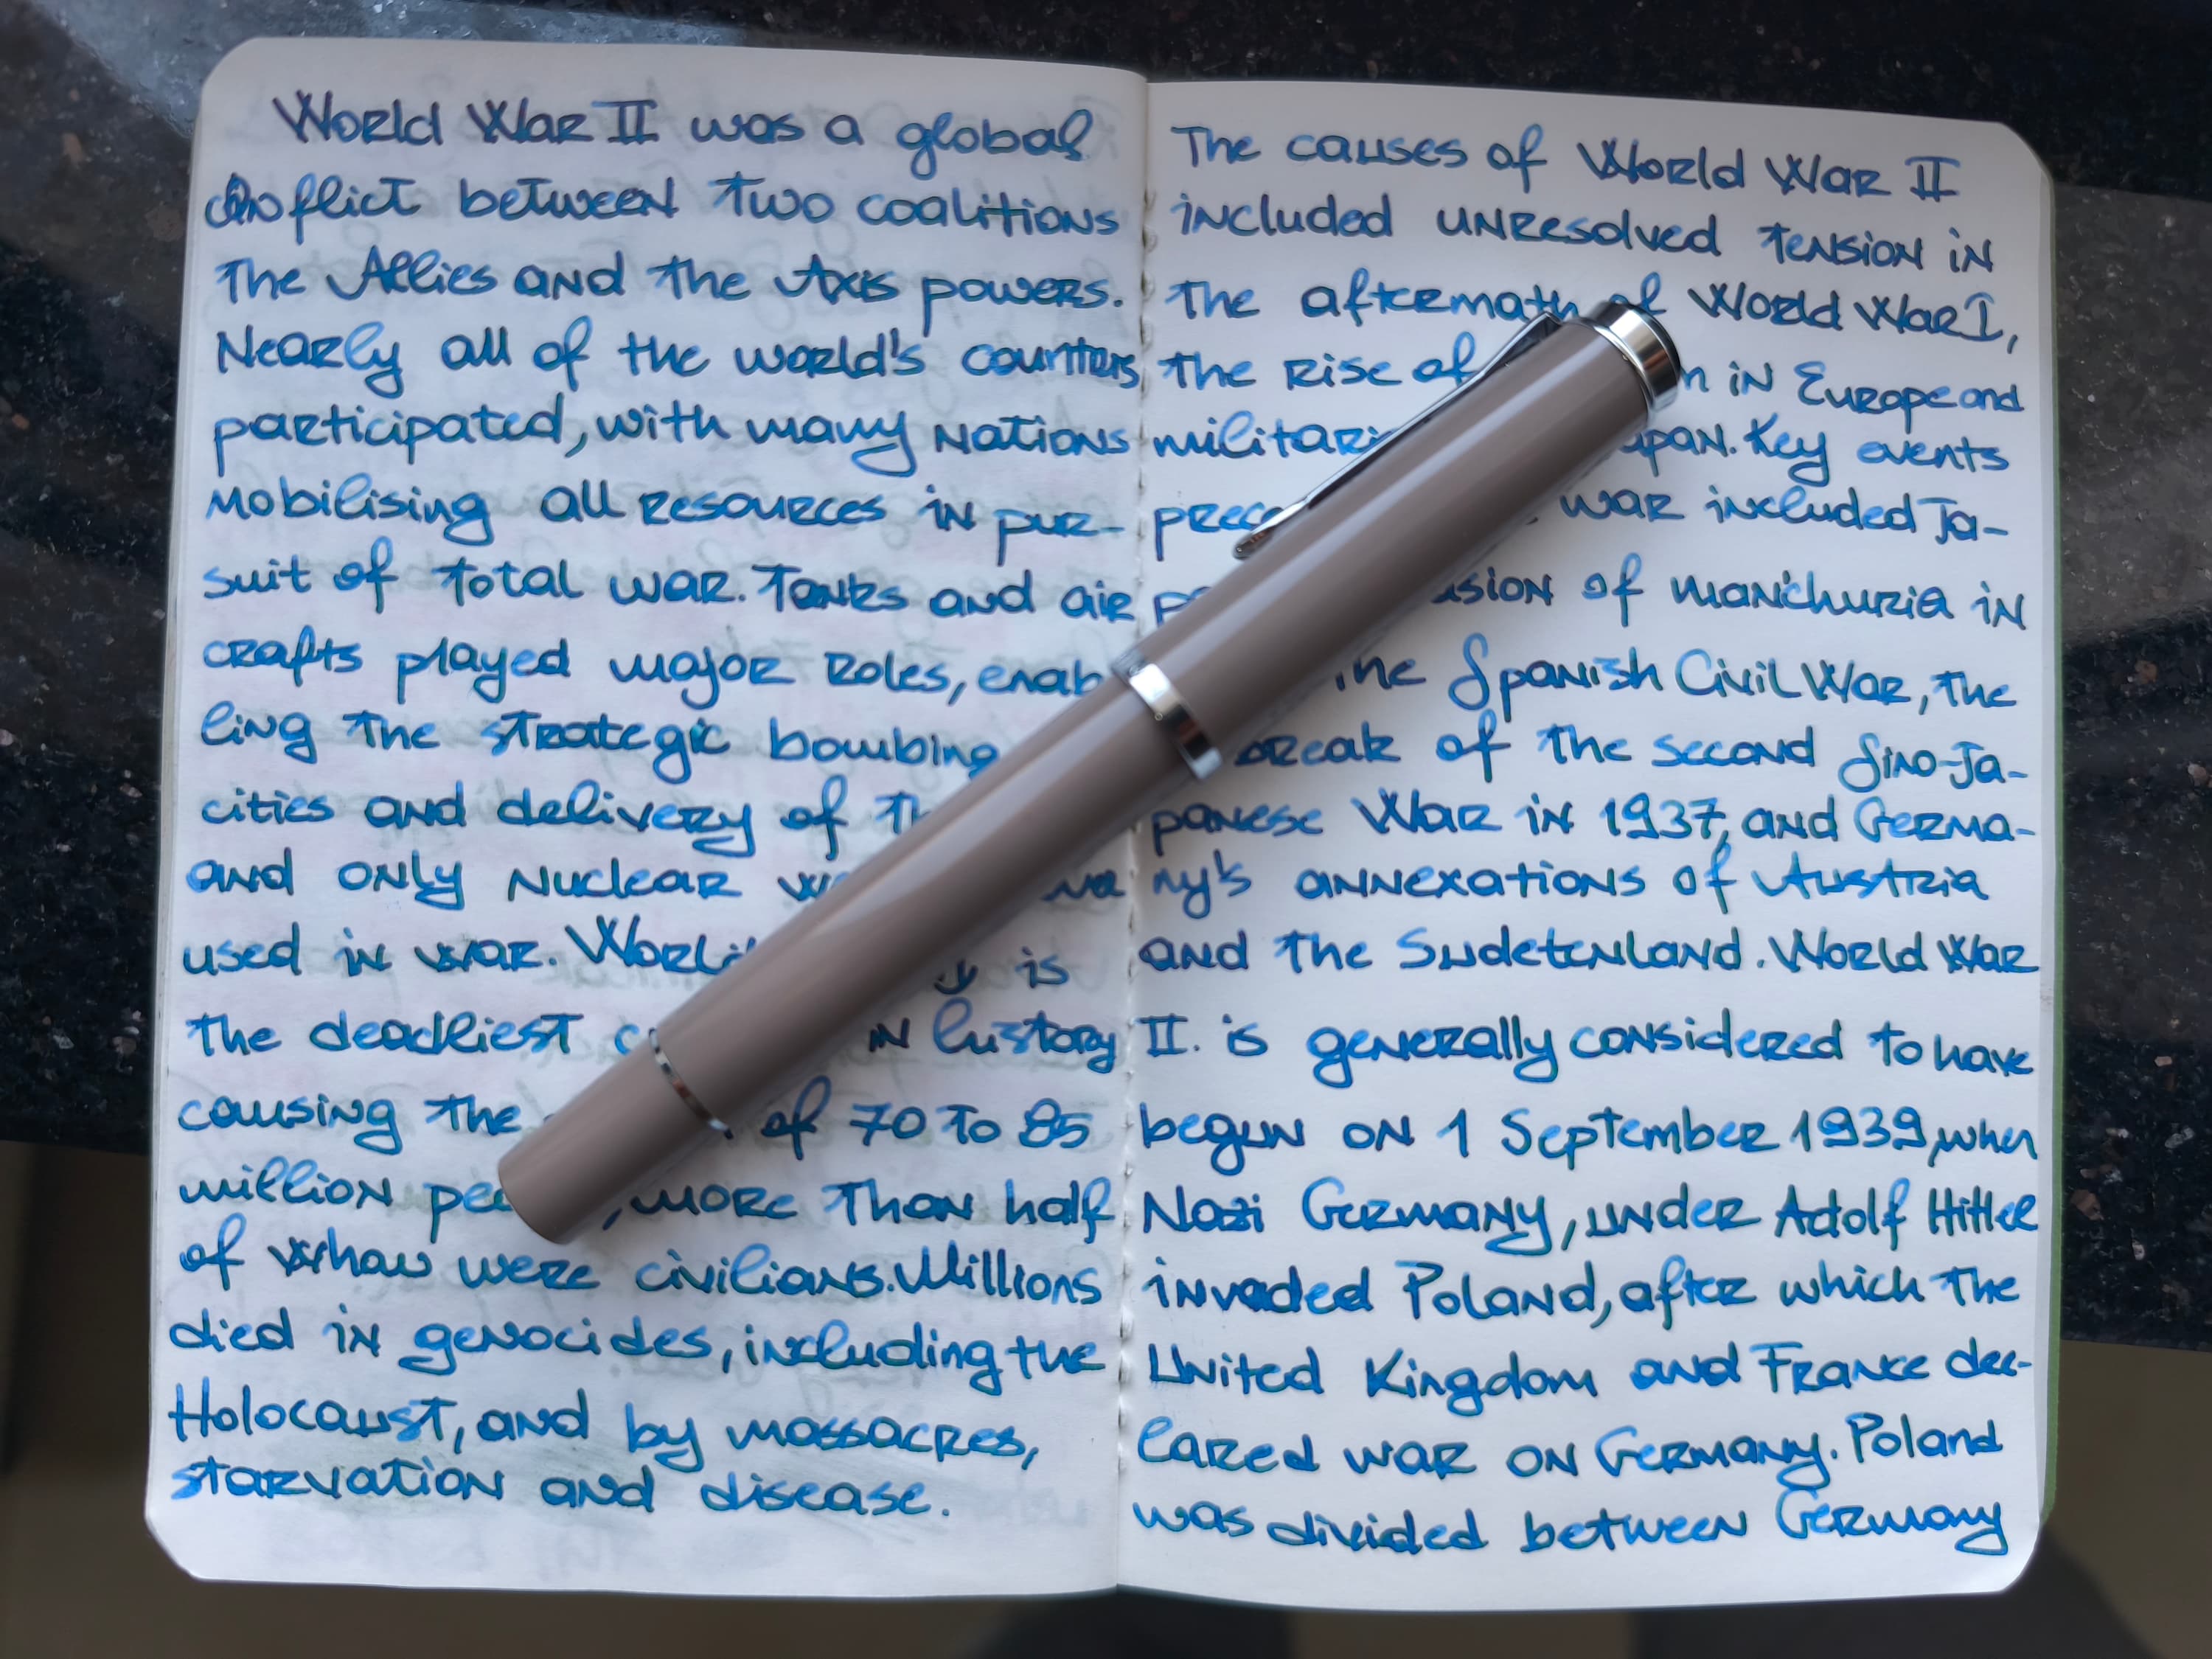 World War II was a global
conflict between two coalitions
the Allies and the Axis powers.
Nearly all of the world's
participated, with many nations
mobilising all resources in pur-
suit of total war. Tanks and air
crafts played major roles, enab
ling the strategic bombing
cities and delivery of
and only nuclear
used in war. World is
the deadliest in history
causing the of 70 to 85
million , more than half
of whom were civilians. Millions
died in genocides, including the
Holocaust, and by massacres,
starvation and disease.
The causes of World War II
included unresolved tension in
the aftermath of World War I,
the rise of in Europe and
Key events
war included Ja-
of Manchuria in
the Spanish Civil War, the
of the second Sino-Ja-
panese War in 1937, and Germa-
ny's annexations of Austria
and the Sudetenland. World War
II. is generally considered to have
begun on 1 September 1939, when
Nazi Germany, under Adolf Hitler
invaded Poland, after which the
United Kingdom and France dec-
lared war on Germany. Poland
was divided between Germany